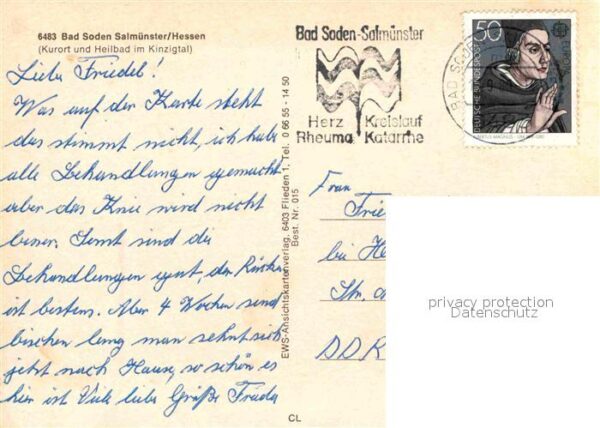 6483 Bad Soden Salmünster/Hessen
(Kurort und Heilbad im Kinzigtal)
Liebe Friedel!
Was auf der Karte steht
das stimmt nicht, ich habe
alle Behandlungen gemacht
aber das Knie wird nicht
besser. Sonst sind die
Behandlungen gut, der Rücken
ist bestens. Aber 4 Wochen sind
bischen lang man sehnt sich
jetzt nach Hause, so schön es
hier ist Viele liebe Grüße Frieda
EWS-Ansichtskartenverlag, 6403 Flieden 1, Tel. 0 66 55 - 14 50
Best. Nr. 015
CL
Bad Soden-Salmünster
Herz Kreislauf
Rheuma Katarrhe
BAD
50
DEUTSCHE BUNDESPOST
EUROPA
Frau
bei
Str.
DDR
privacy protection
Datenschutz